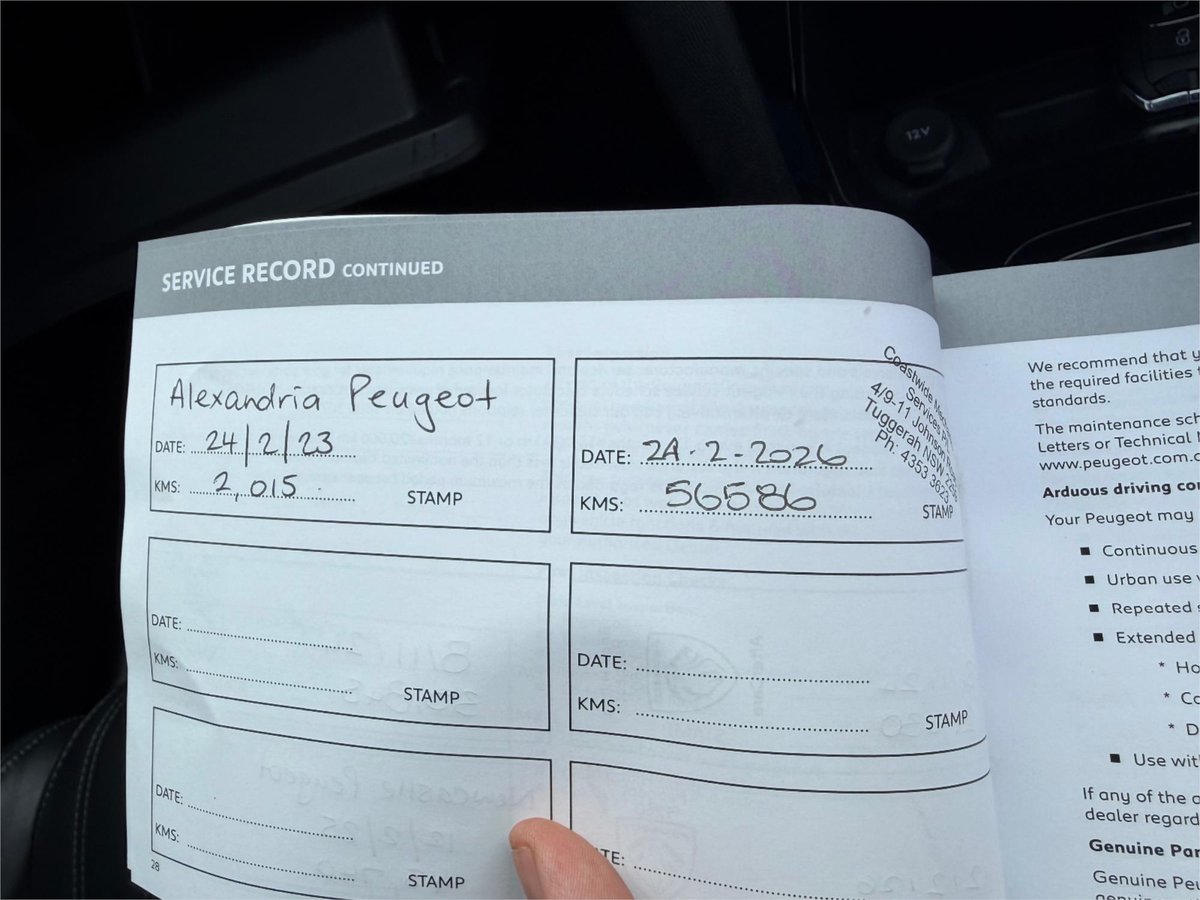 12V
SERVICE RECORD CONTINUED
Alexandria Peugeot
DATE: 24/2/23
KMS: 2,015
STAMP
Coastwide
Services
4/9-11 Johnson
Tuggerah NSW
Ph: 4353 3623
DATE: 24-2-2026
KMS: 56586
STAMP
DATE:
KMS:
STAMP
DATE:
KMS:
STAMP
DATE:
KMS:
STAMP
28
We recommend that
the required facilities
standards.
The maintenance
Letters or Technical
www.peugeot.com
Arduous driving
Your Peugeot may
■ Continuous
■ Urban use
■ Repeated
■ Extended
*
*
*
■ Use
If any of the
dealer
Genuine
Genuine